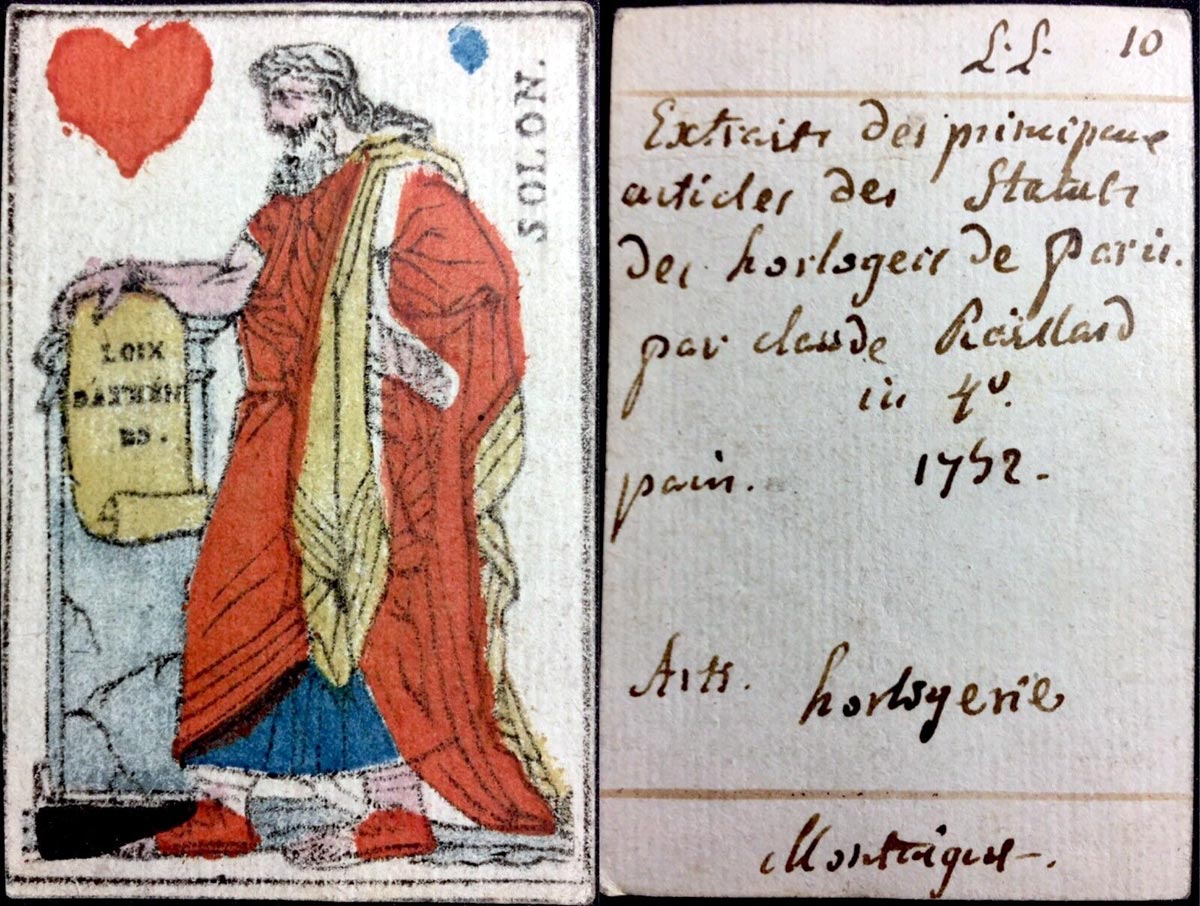 SOLON.
LOIX
D'ATHÈN
ES.
L.L. 10
Extraits des principaux
articles des Statuts
des horlogers de Paris.
par claude Raillard
in 4º.
paris. 1752.
Arts. horlogerie